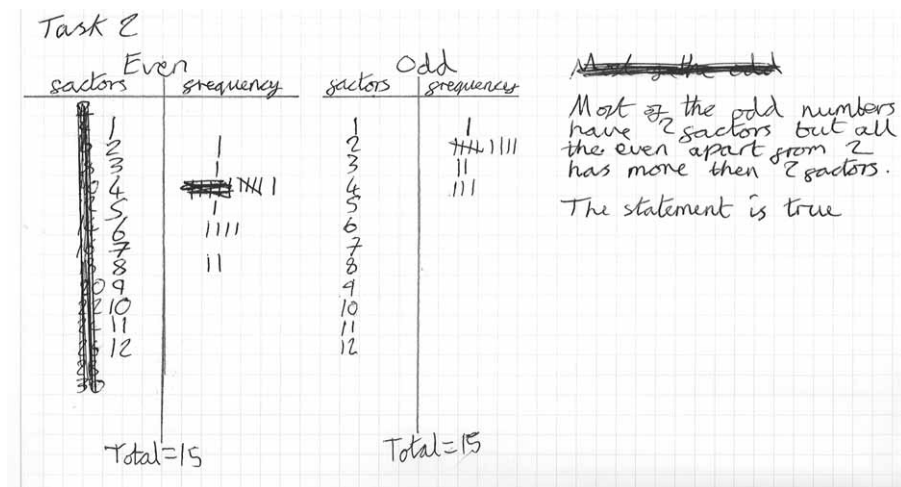 Task 2
Even
factors frequency
1
2 |
3 |
4 𝍸 |
5 |
6 ||||
7
8 ||
9
10
11
12
Total=15
Odd
factors frequency
1 |
2 𝍸 ||||
3 ||
4 |||
5
6
7
8
9
10
11
12
Total=15
Most of the odd
Most of the odd numbers
have 2 factors but all
the even apart from 2
has more then 2 factors.
The statement is true